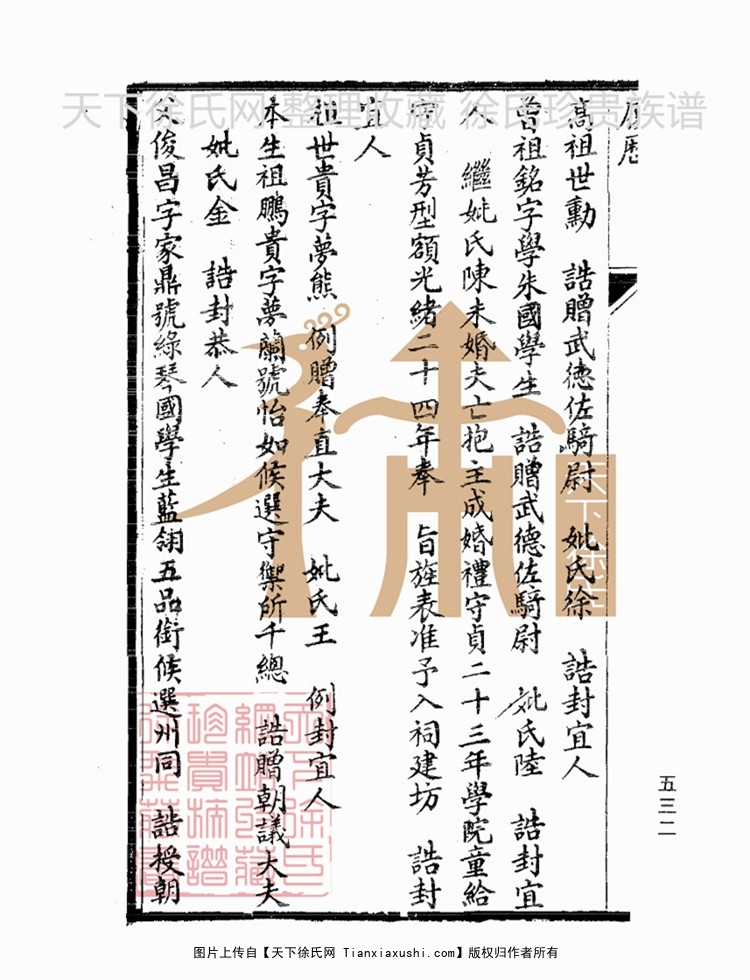 天下徐氏网 整理收藏 徐氏珍贵族谱
履歷
高祖世勳　誥贈武德佐騎尉　妣氏徐　誥封宜人
曾祖銘字學朱國學生　誥贈武德佐騎尉　妣氏陸　誥封宜
人　繼妣氏陳未婚夫亡抱主成婚禮守貞二十三年學院童給
守貞芳型額光緒二十四年奉　旨旌表准予入祠建坊　誥封
宜人
祖世貴字夢熊　例贈奉直大夫　妣氏王　例封宜人
本生祖鵬貴字夢蘭號怡如候選守禦所千總　誥贈朝議大夫
妣氏金　誥封恭人
父俊昌字家鼎號綠琴國學生藍翎五品銜候選州同　誥授朝
五三二
天下徐氏
图片上传自【天下徐氏网 Tianxiaxushi.com】版权归作者所有